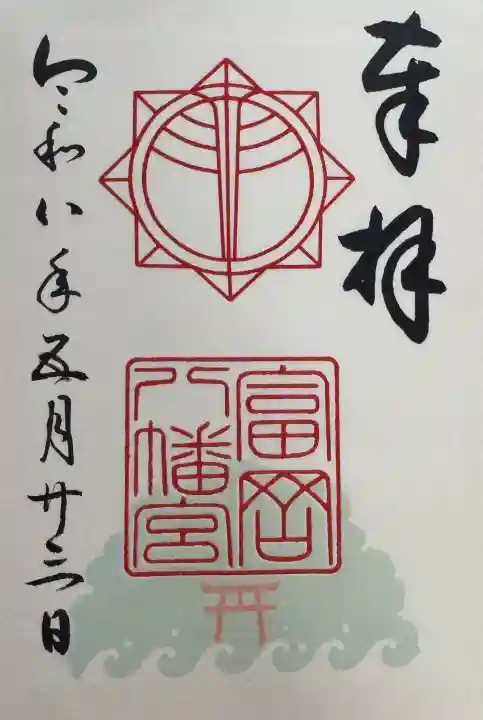 奉拝
富岡
八幡宮
令和八年五月廿三日